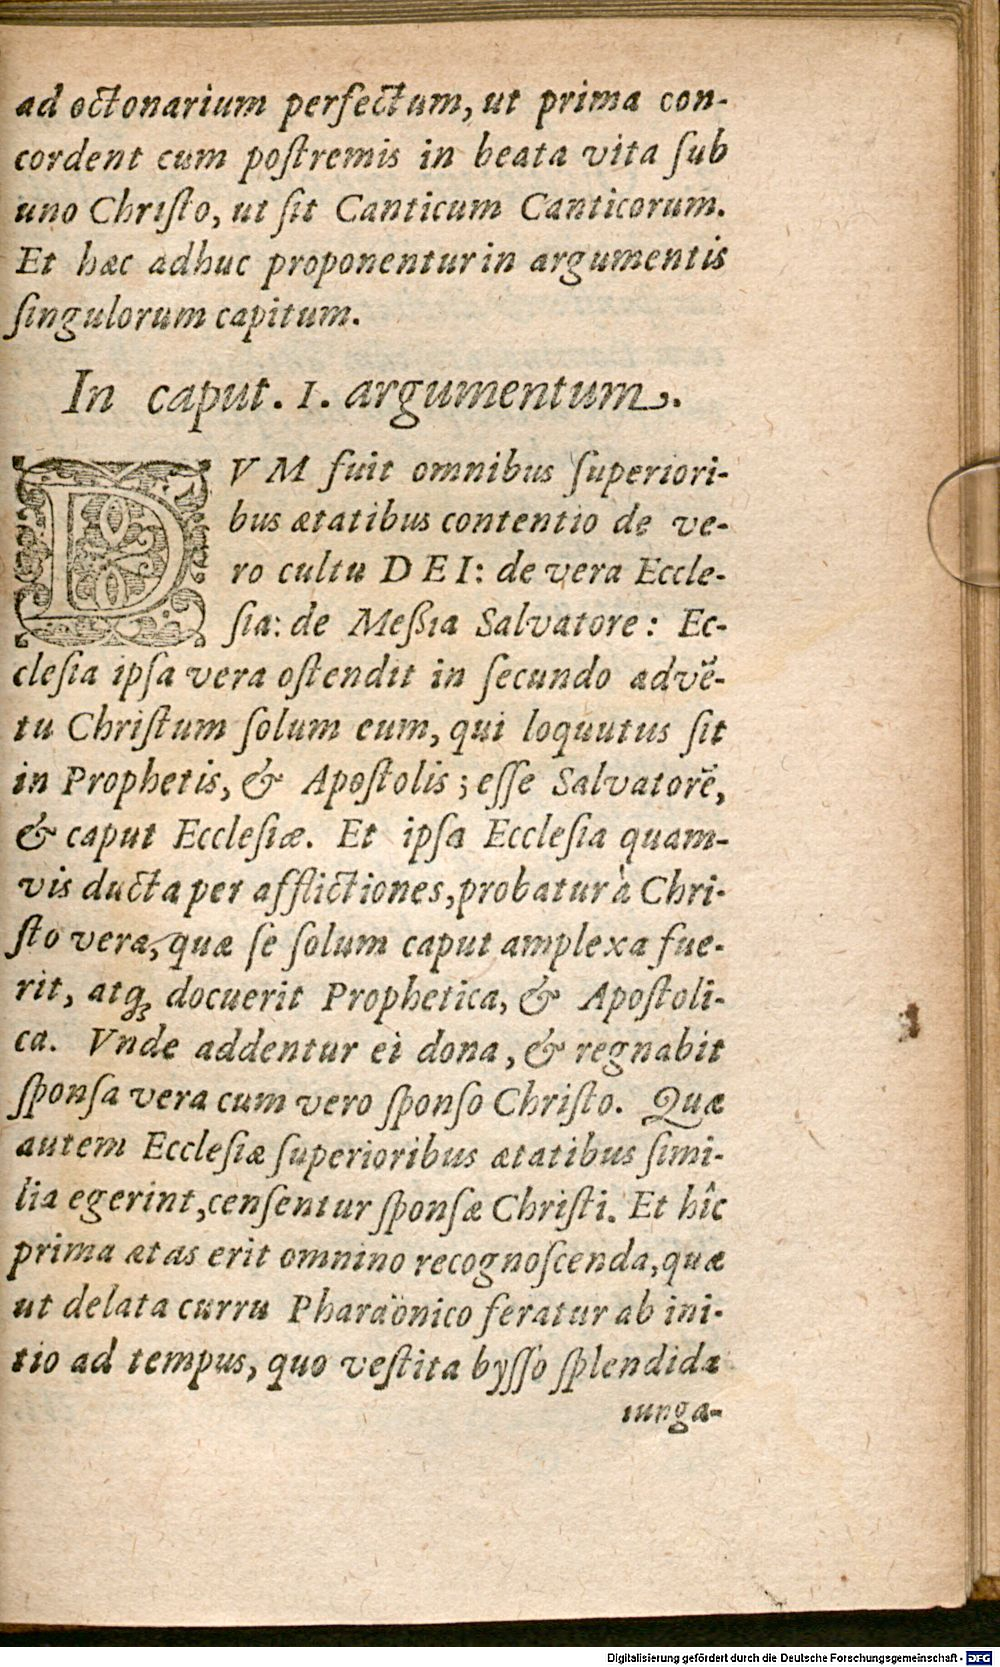 ad octonarium perfectum, ut prima con-
cordent cum poſtremis in beata vita ſub
uno Chriſto, ut ſit Canticum Canticorum.
Et hæc adhuc proponentur in argumentis
ſingulorum capitum.
In caput. 1. argumentum.
DVM fuit omnibus ſuperiori-
bus ætatibus contentio de ve-
ro cultu DEI: de vera Eccle-
ſia: de Meßia Salvatore: Ec-
cleſia ipſa vera oſtendit in ſecundo advē-
tu Chriſtum ſolum eum, qui loquutus ſit
in Prophetis, & Apoſtolis; eſſe Salvatorē,
& caput Eccleſiæ. Et ipſa Eccleſia quam-
vis ducta per afflictiones, probatur à Chri-
ſto vera, quæ ſe ſolum caput amplexa fue-
rit, atq; docuerit Prophetica, & Apoſtoli-
ca. Vnde addentur ei dona, & regnabit
ſponſa vera cum vero ſponſo Chriſto. Quæ
autem Eccleſiæ ſuperioribus ætatibus ſimi-
lia egerint, cenſentur ſponſæ Chriſti. Et hîc
prima ætas erit omnino recognoſcenda, quæ
ut delata curru Pharaönico feratur ab ini-
tio ad tempus, quo veſtita byſſo ſplendida
iunga-
Digitalisierung gefördert durch die Deutsche Forschungsgemeinschaft - DFG